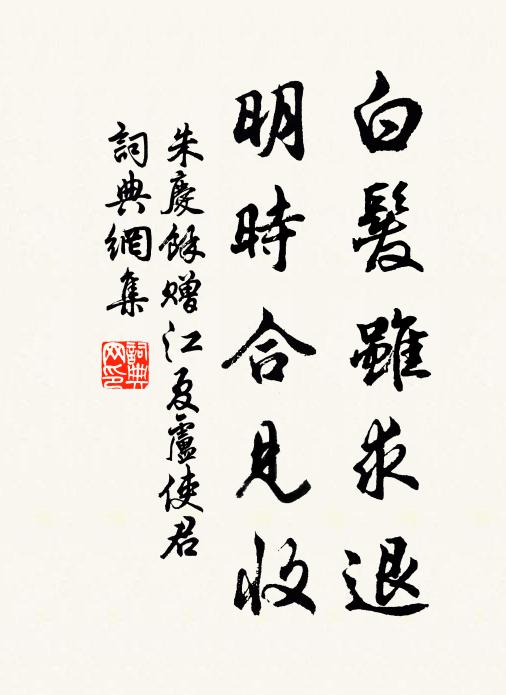 白髮雖求退
明時合見收
朱慶餘贈江夏盧使君
詞典網集
詞典
网印